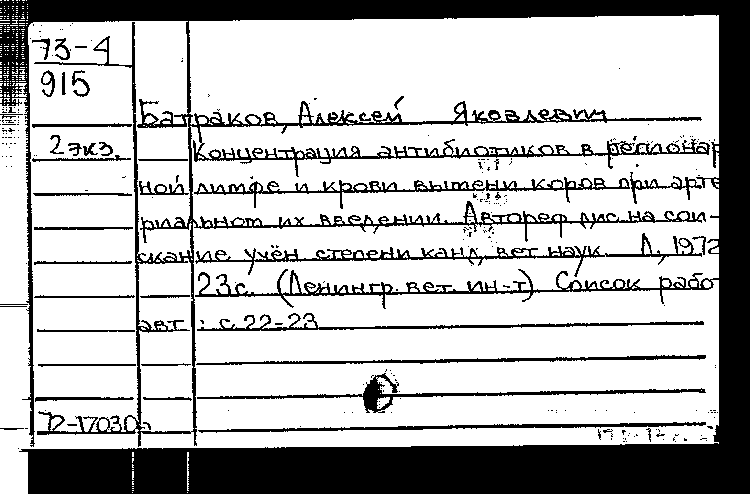 73-4
915
Батраков, Алексей Яковлевич
2 экз.
Концентрация антибиотиков в регионар
ной лимфе и крови вымени коров при арте
риальном их введении. Автореф дис. на сои-
скание учён степени канд. вет наук. Л., 1972
23 с. (Ленингр. вет. ин-т). Список работ
авт.: с. 22-23